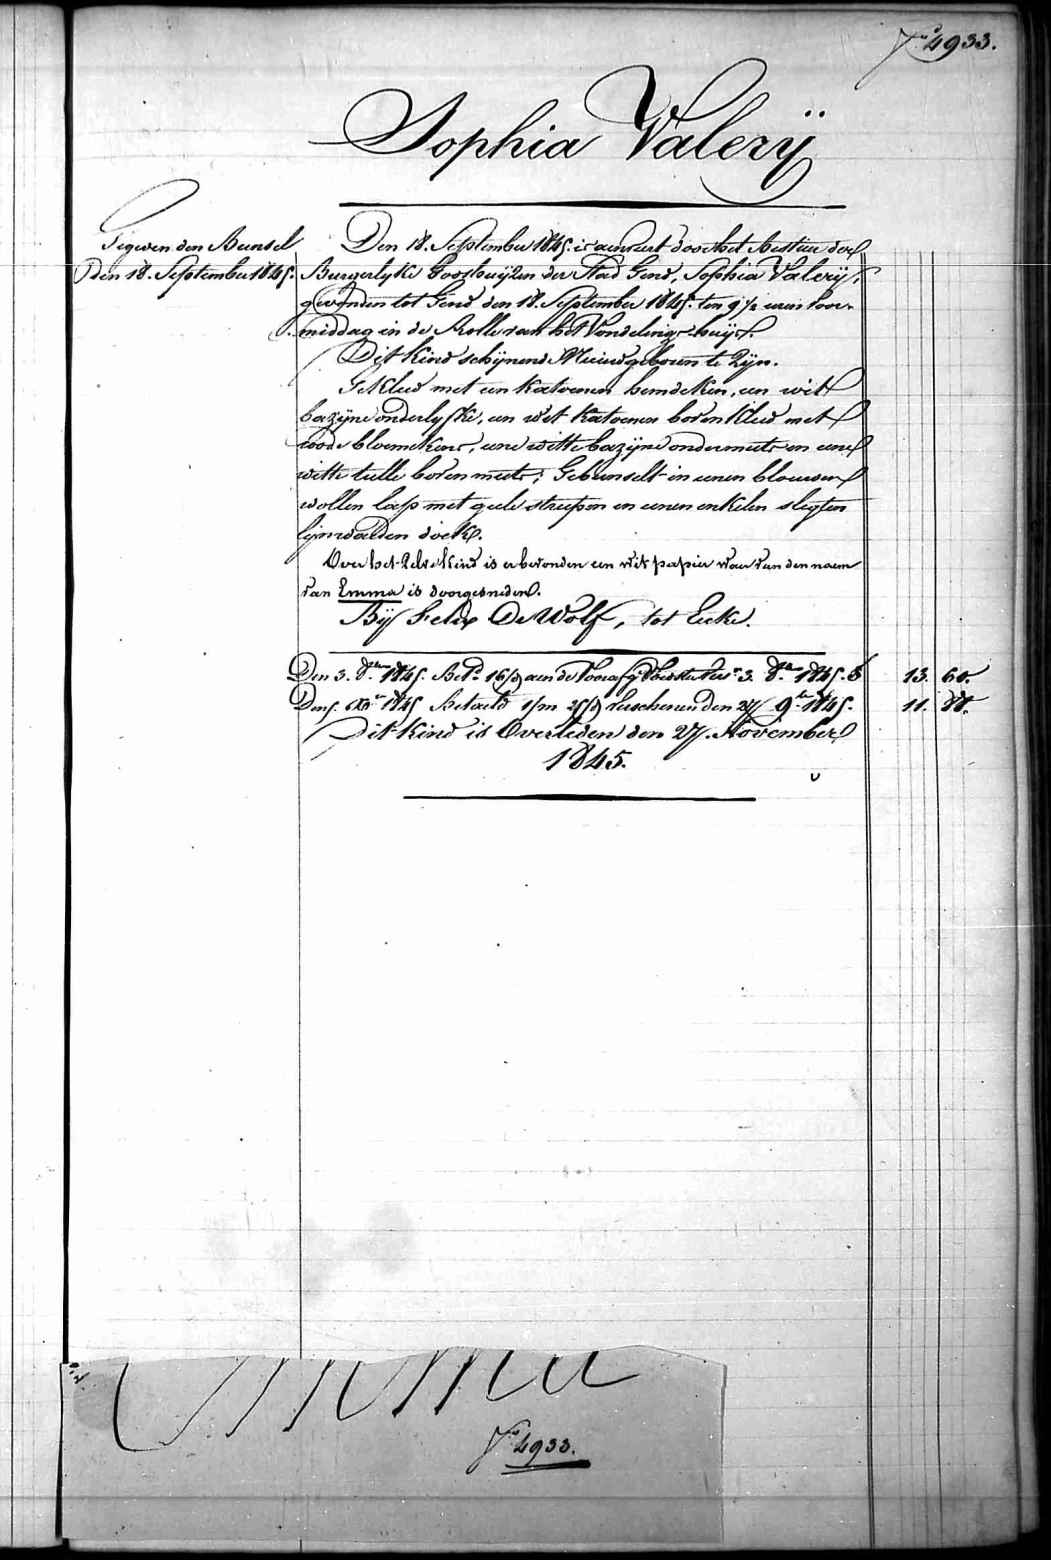 Nº 4933.
Sophia Valerij
Gegeven den Bunsel
den 18. September 1845.
Den 18. September 1845. is aenveert door het bestier der
Burgerlyke Godshuijzen der Stad Gend, Sophia Valerij,
gevonden tot Gend den 18. September 1845. ten 9 1/2 uren voor-
middag in de Rolle van het Vondelings-huijs.
Dit kind schijnend Nieuwgeboren te Zijn.
Gekleed met een katoenen hemdeken, een wit
bazijne onderlyfke, een wit katoenen bovenkleed met
roode bloemekens, eene witte bazijne ondermuts en eene
witte tulle boven muts; Gebunselt in eenen blouwen
wollen lap met geele streepen en eenen enkelen slegten
lijnwaeden doek.
Over het Zelve kind is er bevonden een wit papier waer van den naem
van Emma is doorgesneden.
Bij Felix De Wolf, tot Eecke.
Den 3. 8.bre 1845. Bet. 16/9 aen de 3. 8.bre 1845. 13. 60.
Den 5. 1845 Betaeld 1/m 25/9 Verschenen den 27 9.bre 1845. 11. 88.
Dit kind is Overleden den 27. November
1845.
Emma
Nº 4933.